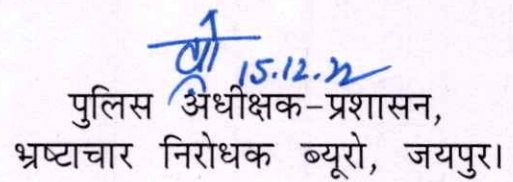 15.12.22
पुलिस अधीक्षक-प्रशासन,
भ्रष्टाचार निरोधक ब्यूरो, जयपुर।